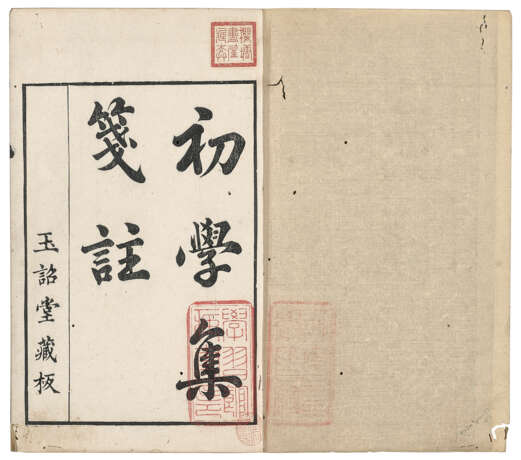 初學集
箋註
玉詔堂藏板